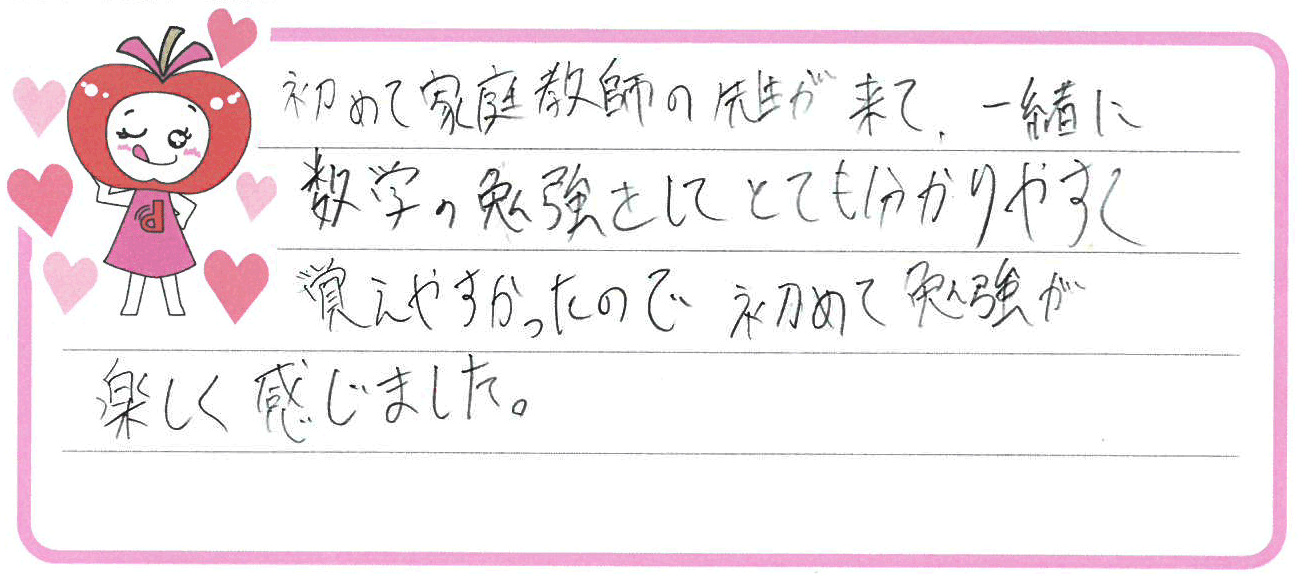 初めて家庭教師の先生が来て、一緒に
数学の勉強をしてとても分かりやすく
覚えやすかったので 初めて勉強が
楽しく感じました。